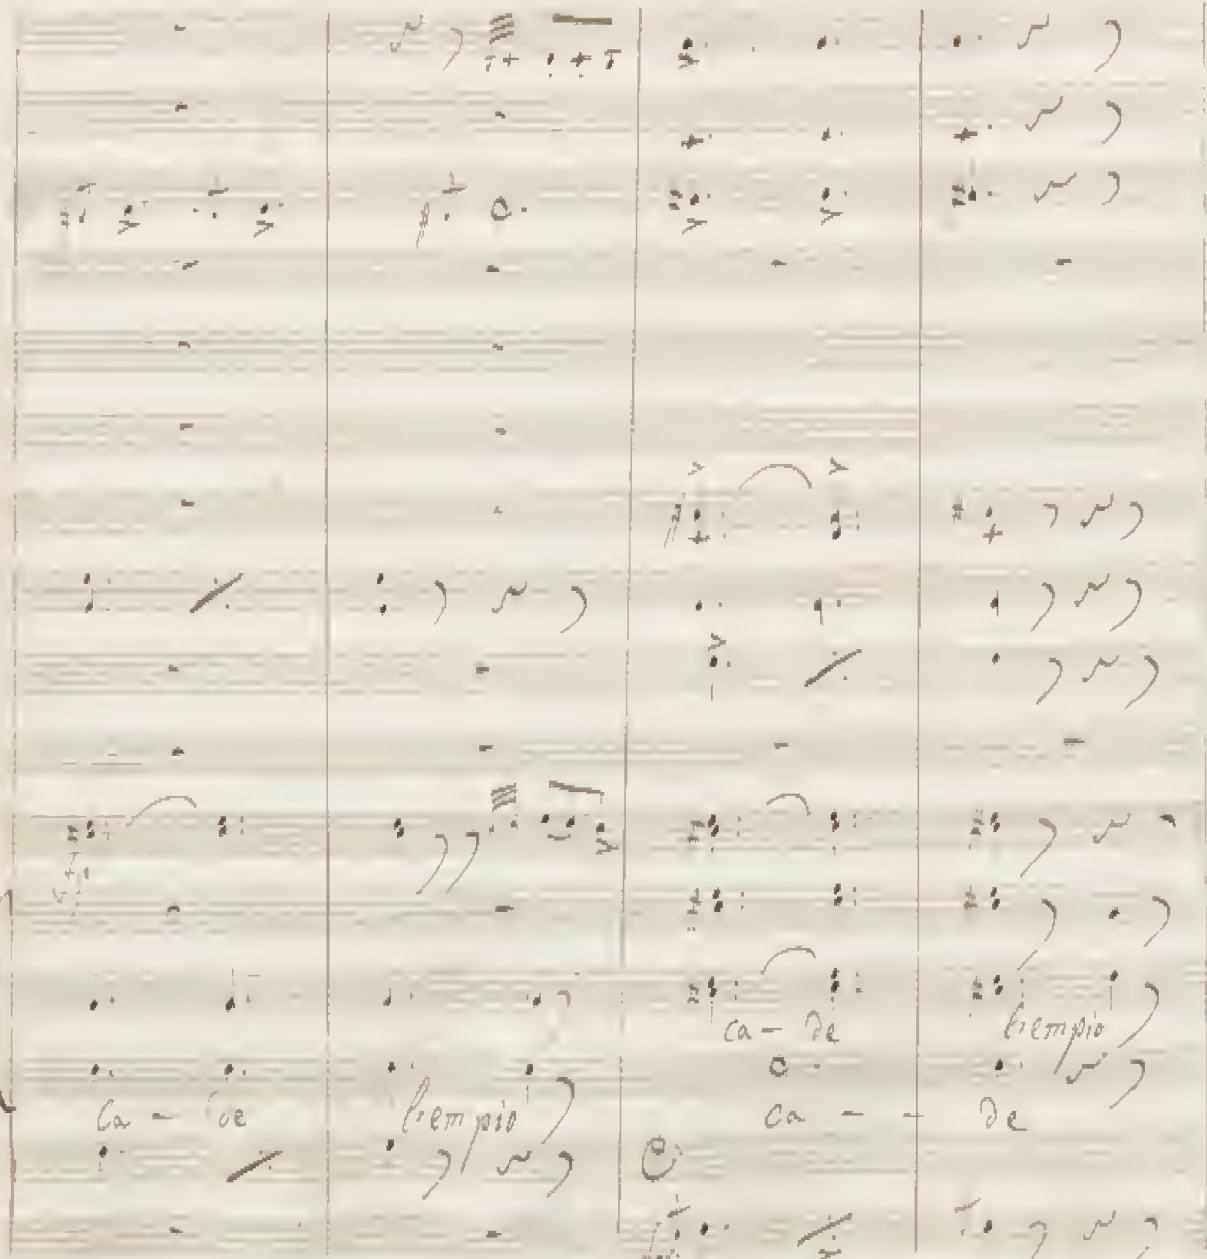 ca - de l'empio
Ca - de l'empio ca - - de